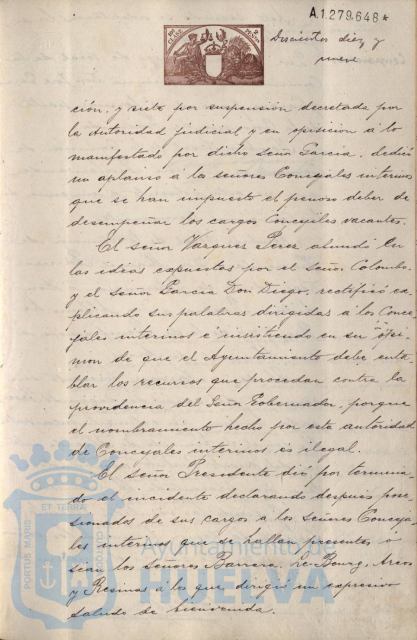 A.1.279,648*
Discientos diez y
nueve
ción, y siete por suspensión decretada por
la Autoridad judicial y en oposición á lo
manifestado por dicho Señor Garcia, dedicó
un aplauso á los señores Concejales interinos
que se han impuesto el penoso deber de
desempeñar los cargos Concejiles vacantes.
El señor Vazquez Perez abundó en
las ideas expuestas por el Señor Colombo
y el señor Garcia Don Diego, rectificó ex
plicando sus palabras dirigidas á los Conce
jales interinos é insistiendo en su opi
nion de que el Ayuntamiento debe enta
blar los recursos que procedan contra la
providencia del Señor Gobernador, porque
el nombramiento hecho por esta autoridad
de Concejales interinos es ilegal.
El señor Presidente dió por termina
do el incidente declarando despues pose
sionados de sus cargos á los señores Conceja
les interinos que se hallan presentes ó
sean los señores Barrera, Bourg,
y Resinas á los que dirigió un expresivo
saludo de bienvenida.
PORTUS MARIS ET TERRAE CUSTODIA
Ayuntamiento de
HUELVA